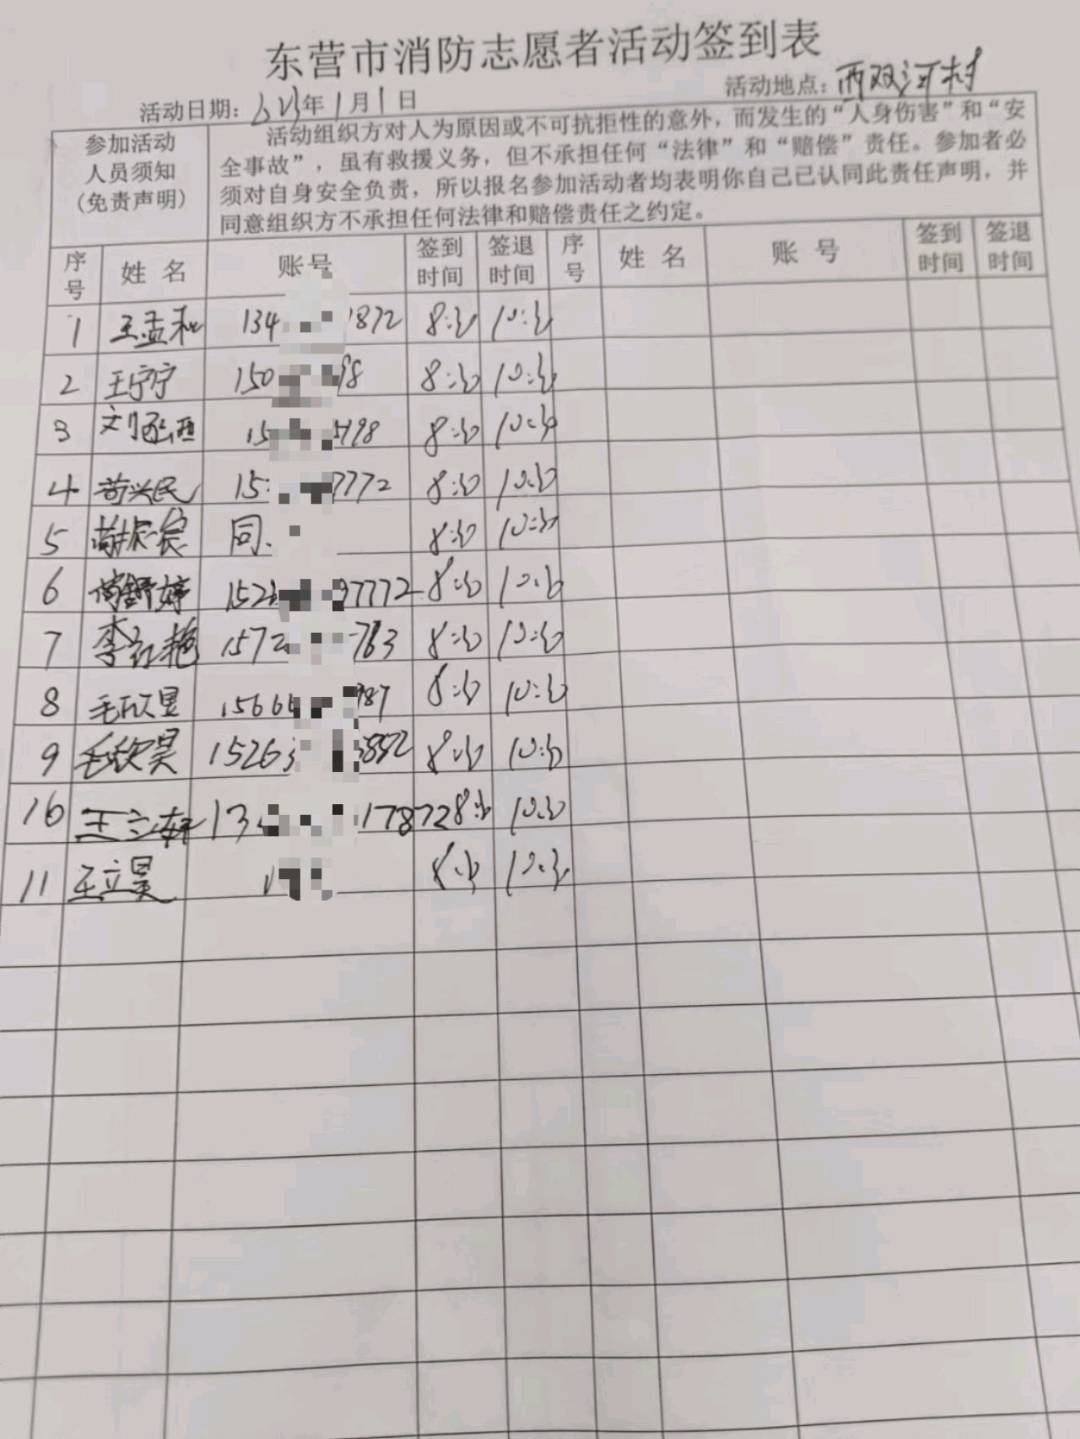 东营市消防志愿者活动签到表
活动日期: 年1月1日 活动地点: 西双河村
参加活动人员须知(免责声明)
活动组织方对人为原因或不可抗拒性的意外，而发生的“人身伤害”和“安
全事故”，虽有救援义务，但不承担任何“法律”和“赔偿”责任。参加者必
须对自身安全负责，所以报名参加活动者均表明你自己已认同此责任声明，并
同意组织方不承担任何法律和赔偿责任之约定。
序号 姓名 账号 签到时间 签退时间 序号 姓名 账号 签到时间 签退时间
1 王孟和 134 1872 8:30 10:30
2 王宁宁 150 98 8:30 10:30
3 15 5198 8:30 10:30
4 苟兴民 15 7772 8:30 10:30
5 同 8:30 10:30
6 152 97772 8:30 10:30
7 李红艳 1572 763 8:30 10:30
8 毛欣昱 1566 987 8:30 10:30
9 毛钦昊 15263 3852 8:30 10:30
10 王立轩 13 17872 8:30 10:30
11 王立昊 8:30 10:30